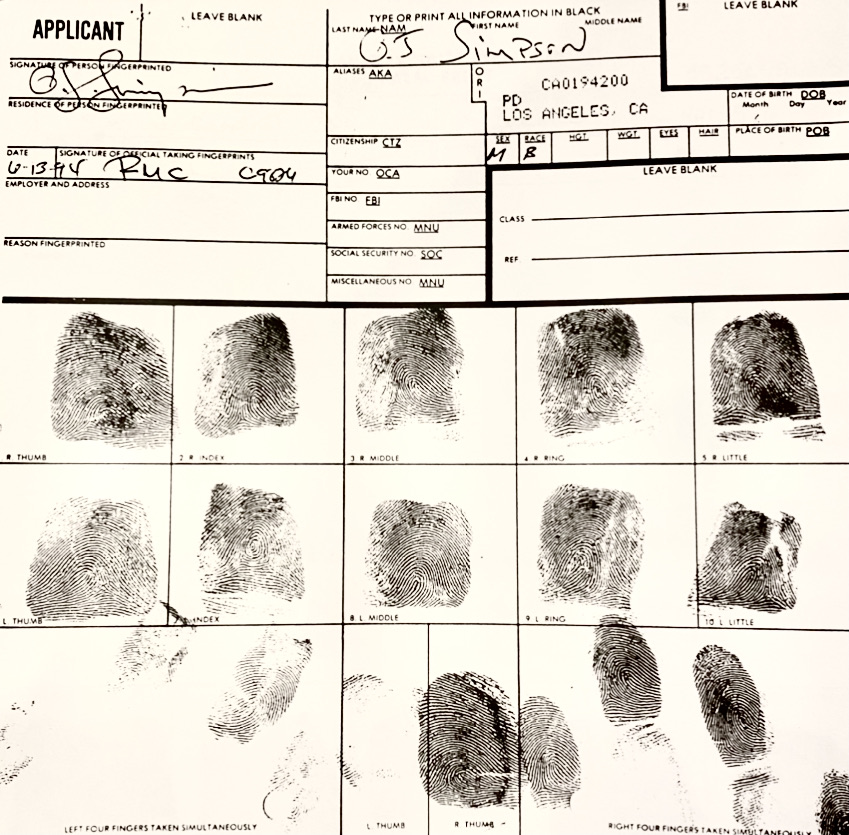 APPLICANT
LEAVE BLANK
TYPE OR PRINT ALL INFORMATION IN BLACK
LAST NAME NAM FIRST NAME MIDDLE NAME
O.J. SIMPSON
FBI LEAVE BLANK
SIGNATURE OF PERSON FINGERPRINTED
RESIDENCE OF PERSON FINGERPRINTED
ALIASES AKA
ORI
CA0194200
PD
LOS ANGELES, CA
DATE OF BIRTH DOB
Month Day Year
CITIZENSHIP CTZ
SEX RACE HGT. WGT. EYES HAIR PLACE OF BIRTH POB
M B
DATE SIGNATURE OF OFFICIAL TAKING FINGERPRINTS
6-13-94
YOUR NO. OCA
LEAVE BLANK
EMPLOYER AND ADDRESS
FBI NO. FBI
CLASS
ARMED FORCES NO. MNU
REASON FINGERPRINTED
SOCIAL SECURITY NO. SOC
REF.
MISCELLANEOUS NO. MNU
R. THUMB 2. R. INDEX 3. R. MIDDLE 4. R. RING 5. R. LITTLE
L. THUMB INDEX 8. L. MIDDLE 9. L. RING 10. L. LITTLE
LEFT FOUR FINGERS TAKEN SIMULTANEOUSLY L. THUMB R. THUMB RIGHT FOUR FINGERS TAKEN SIMULTANEOUSLY